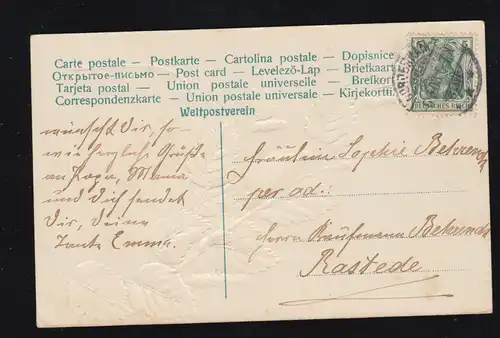 Carte postale – Postkarte – Cartolina postale – Dopisnice
Открытое-письмо – Post card – Levelező-Lap – Briefkaart
Tarjeta postal – Union postale universelle – Brefkort
Correspondenzkarte – Union postale universale – Kirjekortti
Weltpostverein
5
DEUTSCHES REICH
wünscht Dir, so-
wie herzliche Grüße
an Papa, Mama
und Dich sendet
Dir, deine
Tante Emma.
Fräulein Sophie
per ad:
Herrn Kaufmann
Rastede